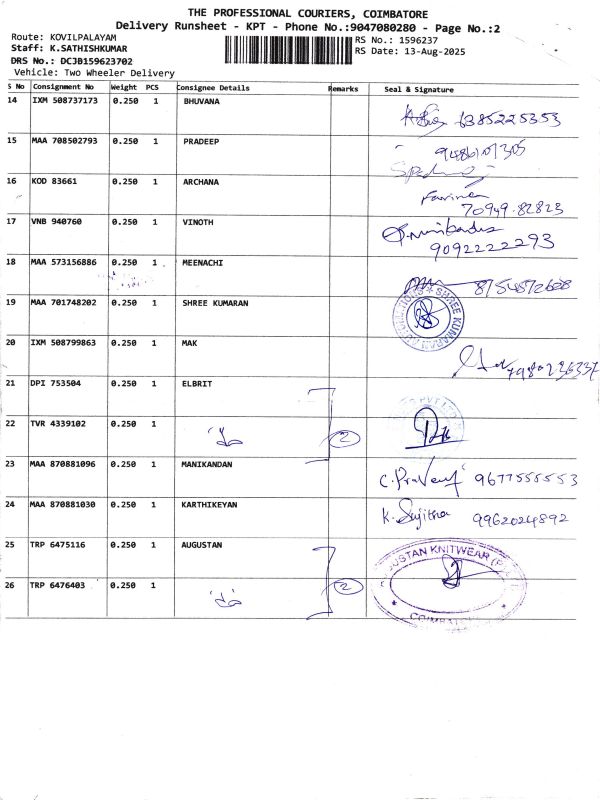 THE PROFESSIONAL COURIERS, COIMBATORE
Delivery Runsheet - KPT - Phone No.:9047080280 - Page No.:2
Route: KOVILPALAYAM
RS No.: 1596237
Staff: K.SATHISHKUMAR
RS Date: 13-Aug-2025
DRS No.: DCJB159623702
Vehicle: Two Wheeler Delivery
S No Consignment No Weight PCS Consignee Details Remarks Seal & Signature
14 IXM 508737173 0.250 1 BHUVANA 6385225353
15 MAA 708502793 0.250 1 PRADEEP
16 KOD 83661 0.250 1 ARCHANA 70949 82823
17 VNB 940760 0.250 1 VINOTH 9092222293
18 MAA 573156886 0.250 1 MEENACHI 8754872608
19 MAA 701748202 0.250 1 SHREE KUMARAN SHREE KUMARAN
20 IXM 508799863 0.250 1 MAK
21 DPI 753504 0.250 1 ELBRIT
22 TVR 4339102 0.250 1 2
23 MAA 870881096 0.250 1 MANIKANDAN C. Praveen 9677555553
24 MAA 870881030 0.250 1 KARTHIKEYAN K. Sujitha 9962024892
25 TRP 6475116 0.250 1 AUGUSTAN AUGUSTAN KNITWEAR
26 TRP 6476403 0.250 1 2 COIMBATORE